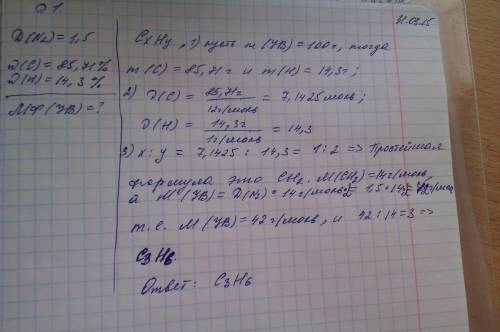 Д1.
31.03.15
D(N₂)=1,5
D(C)=85,71%
D(H)=14,3%
МФ(УВ)=?
CxHy, 1) пусть m(УВ)=100г, тогда
m(C)=85,71г и m(H)=14,3г;
2) D(C) = 85,71г / 12г/моль = 7,1425моль;
D(H) = 14,3г / 1г/моль = 14,3
3) x:y = 7,1425 : 14,3 = 1:2 => Простейшая
формула это CH₂. M(CH₂)=14г/моль,
а M(УВ)=D(N₂)·14г/моль·2=1,5·14·2=42г/моль
т.е. M(УВ)=42г/моль, и 42:14=3=>
C₃H₆.
Ответ: C₃H₆